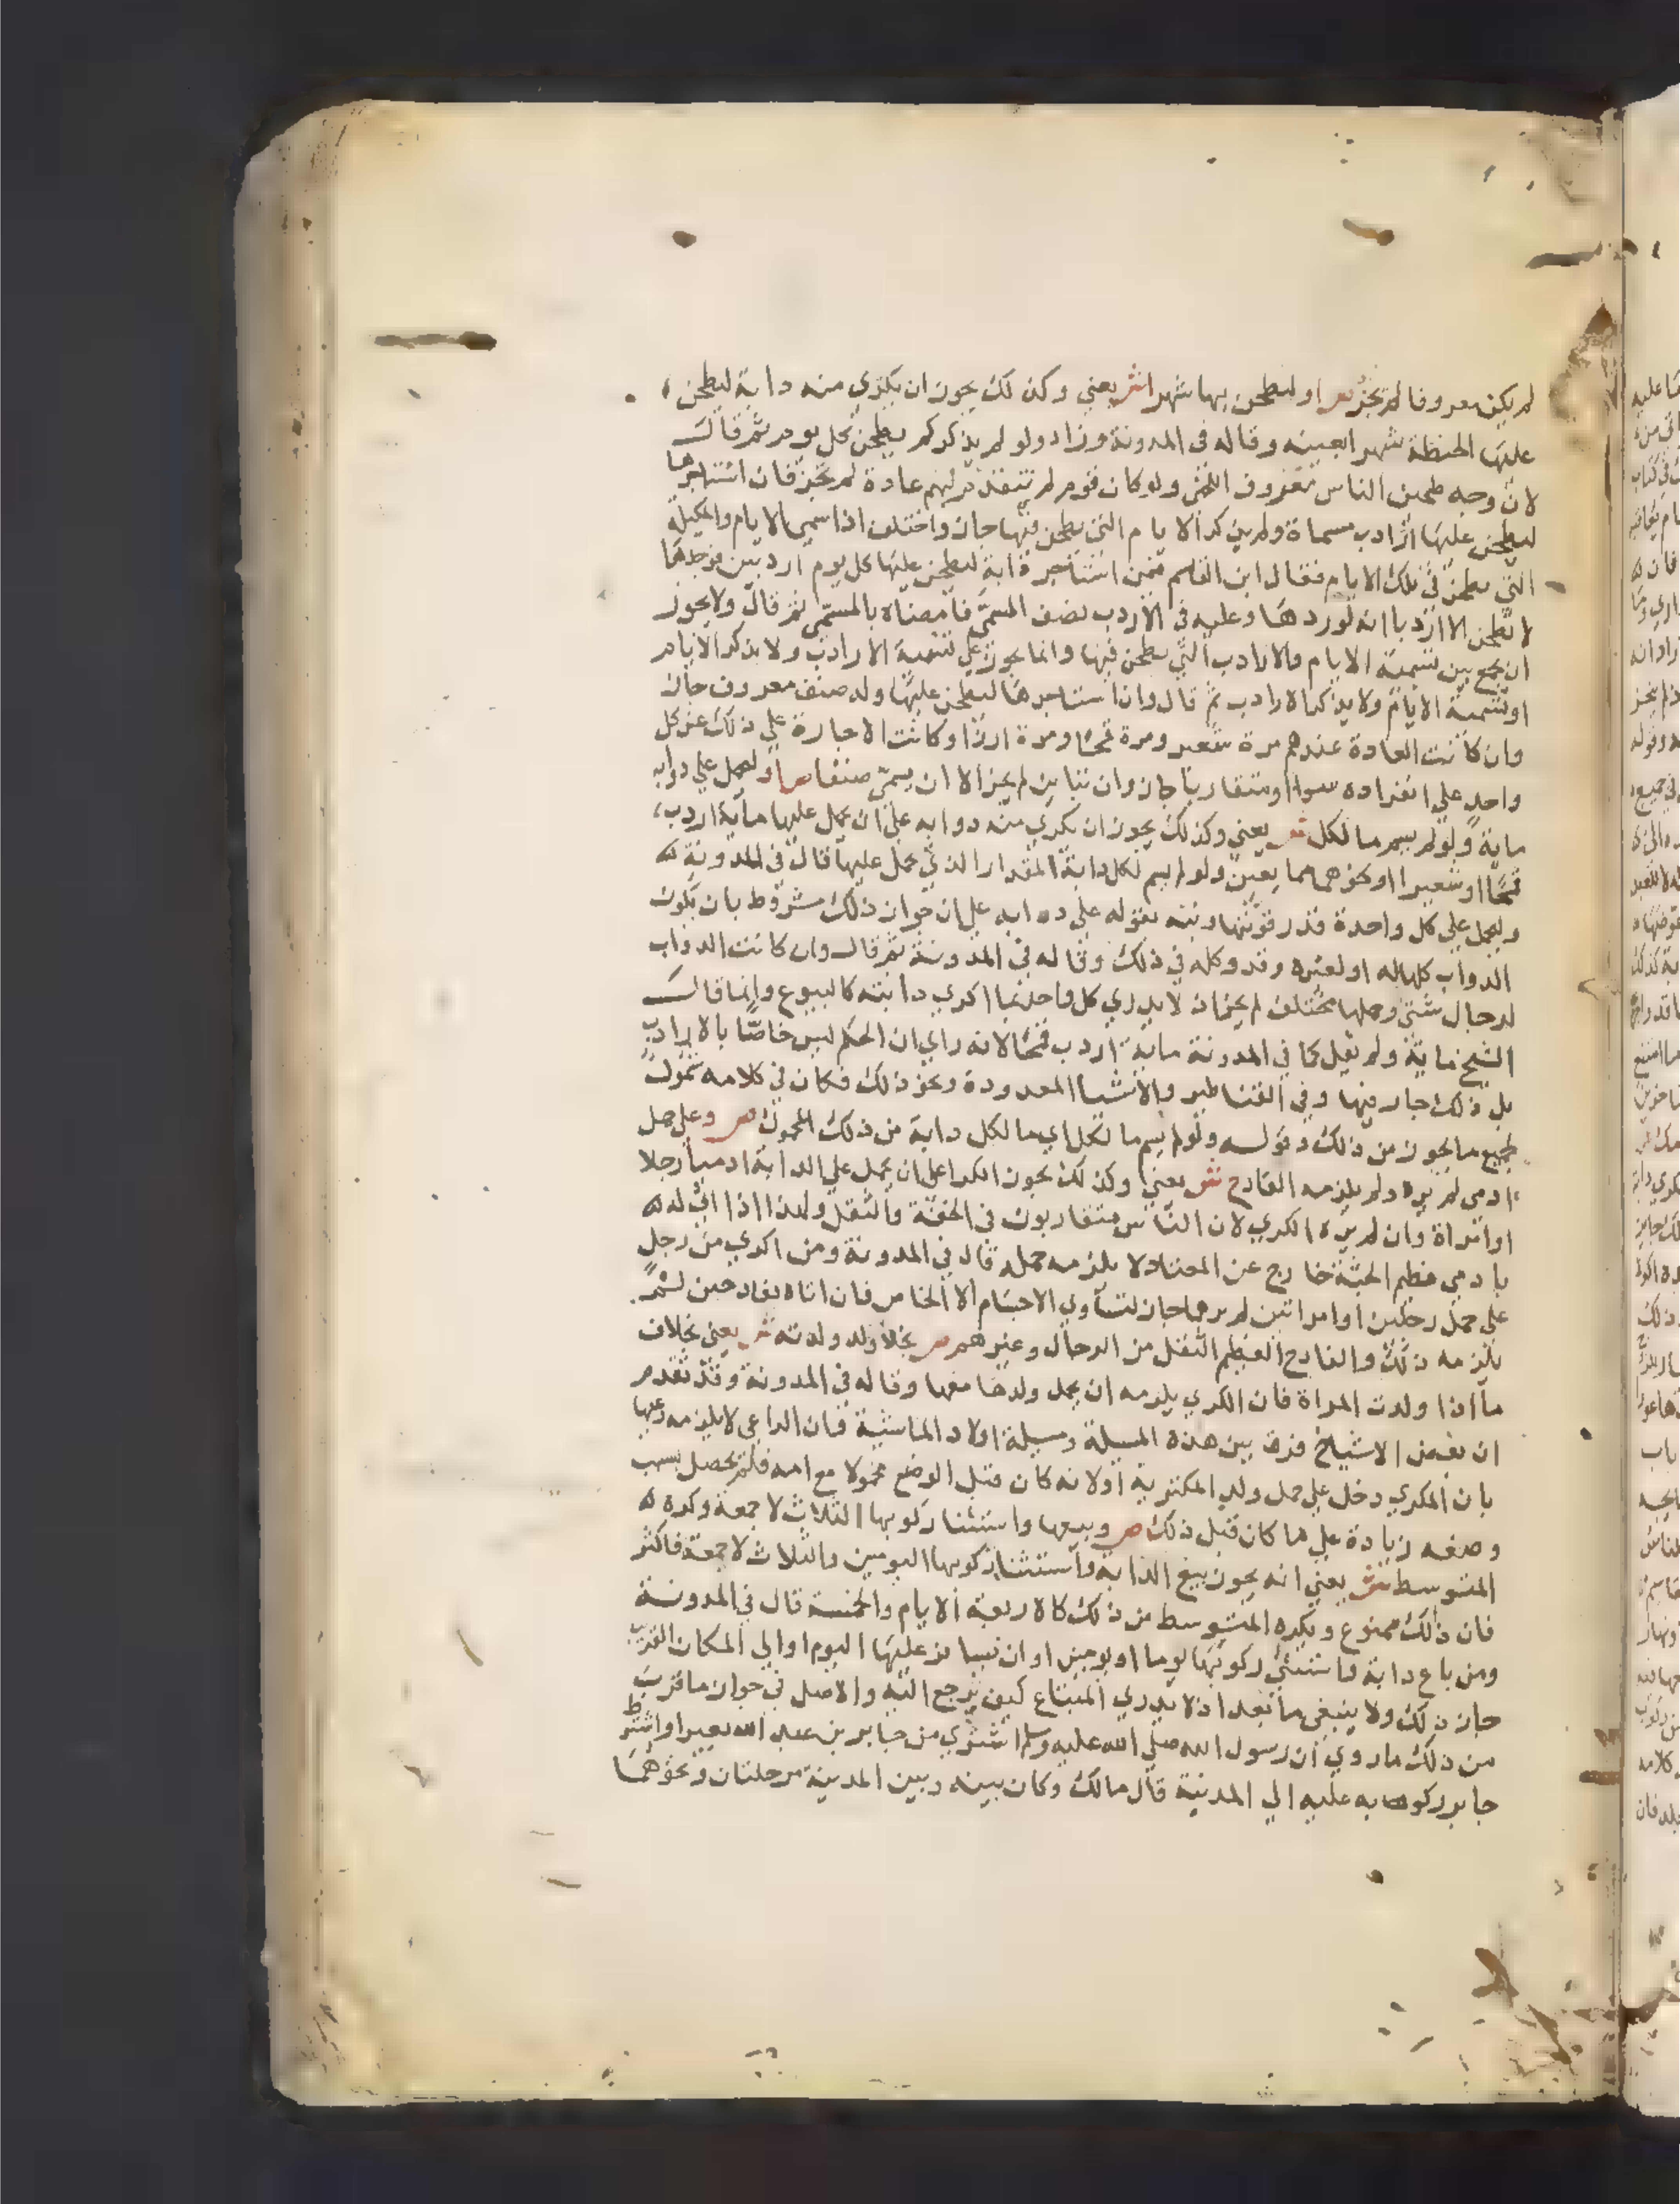 لم يكن معروفا لم يجز ص او ليطحن بها شهرا ش يعني وكذلك يجوز ان يكتري منه دابة ليطحن
عليها الحنطة شهرا بعينه وقاله في المدونة وزاد ولو لم يذكر كم يطحن كل يوم ثم قال
لان وجه طحين الناس معروف اللخمي ولو كان قوم لم تتقدم لهم عادة لم يجز فان استاجرها
ليطحن عليها ارادب مسماة ولم يذكر الايام التي يطحن فيها جاز واختلف اذا سمى الايام والمكيلة
التي يطحن في تلك الايام فقال ابن القاسم فيمن استاجر دابة ليطحن عليها كل يوم اردبين فوجدها
لا تطحن الا اردبا انه لو ردها وعليه في الاردب نصف المسمى فامضاه بالمسمى ثم قال ولا يجوز
ان يجمع بين تسمية الايام والارادب التي يطحن فيها وانما يجوز على تسمية الارادب ولا يذكر الايام
او تسمية الايام ولا يذكر الارادب ثم قال وان استاجرها ليطحن عليها وله صنف معروف جاز
وان كانت العادة عندهم مرة شعير ومرة قمحا ومرة ارزا وكانت الاجارة على ذلك عن كل
واحد على انفراده سواا ومتقاربا جاز وان تباين لم يجز الا ان يسمي صنفا ص او ليحمل على دوابه
ماية ولو لم يسم ما لكل ش يعني وكذلك يجوز ان يكري منه دوابه على ان يحمل عليها ماية اردب
قمحا او شعيرا او نحوهما مما يعين ولو لم يسم لكل دابة المقدار الذي يحمل عليها قال في المدونة
ويحمل على كل واحدة قدر قوتها ونبه بقوله على دوابه على ان جواز ذلك مشروط بان يكون
الدواب كلها له او لغيره وقد وكله في ذلك وقاله في المدونة ثم قال وان كانت الدواب
لرجال شتى وحملها مختلف لم يجز اذ لا يدري كل واحد بما اكري دابته كالبيوع وانما قال
الشيخ ماية ولم يقل كما في المدونة ماية اردب قمحا لانه راي ان الحكم ليس خاصا بالارادب
بل ذلك جار فيها وفي القناطير والاشيا المعدودة ونحو ذلك فكان في كلامه شمول
لجميع ما يجوز من ذلك وقوله ولو لم يسم ما لكل اي ما لكل دابة من ذلك المحمول ص وعلى حمل
ادمي لم يره ولم يلزمه الفادح ش يعني وكذلك يجوز الكرا على ان يحمل على الدابة ادميا رجلا
او امراة وان لم يره الكري لان الناس متقاربون في الخفة والثقل ولهذا اذا اتي له
بادمي عظيم الجثة خارج عن المعتاد لا يلزمه حمله قال في المدونة ومن اكرى من رجل
على حمل رجلين او امراتين لم يرهما جاز لتساوي الاجسام الا الخاص فان اتاه بفادحين لم
يلزمه ذلك والفادح العظيم الثقل من الرجال وغيرهم ص بخلاف ولد ولدته ش يعني بخلاف
ما اذا ولدت المراة فان الكري يلزمه ان يحمل ولدها معها وقاله في المدونة وقد تقدم
ان بعض الاشياخ فرق بين هذه المسيلة ومسيلة اولاد الماشية فان الراعي لا يلزمه رعيها
بان المكري دخل على حمل ولد المكترية او لانه كان قبل الوضع محمولا مع امه فلم يحصل بسبب
وضعه زيادة على ما كان قبل ذلك ص وبيعها واستثنا ركوبها الثلاث لا جمعة وكره
المتوسط ش يعني انه يجوز بيع الدابة واستثنا ركوبها اليومين والثلاث لا جمعة فاكثر
فان ذلك ممنوع ويكره المتوسط من ذلك كالاربعة الايام والخمسة قال في المدونة
ومن باع دابة واستثنى ركوبها يوما او يومين او ان يسافر عليها اليوم او الي المكان القريب
جاز ذلك ولا ينبغي ما بعد اذ لا يدري المبتاع كيف ترجع اليه والاصل في جواز ما قرب
من ذلك ما روي ان رسول الله صلي الله عليه وسلم اشترى من جابر بن عبد الله بعيرا واشترط
جابر ركو به عليه الي المدينة قال مالك وكان بينه وبين المدينة مرحلتان ونحوهما